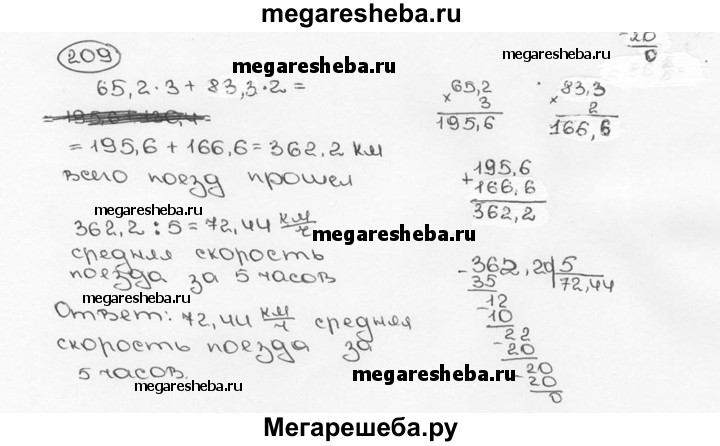 megaresheba.ru
209
megaresheba.ru
megaresheba.ru
-20
0
65,2·3 + 83,3·2 =
= 195,6 + 166,6 = 362,2 км
всего поезд прошел
65,2
× 3
195,6
83,3
× 2
166,6
195,6
+ 166,6
362,2
megaresheba.ru
megaresheba.ru
362,2 : 5 = 72,44 км/ч
средняя скорость
поезда за 5 часов
megaresheba.ru
Ответ: 72,44 км/ч средняя
скорость поезда за
5 часов.
megaresheba.ru
- 362,20 5
35 72,44
- 12
10
- 22
20
- 20
20
0
megaresheba.ru
Мегарешеба.ру